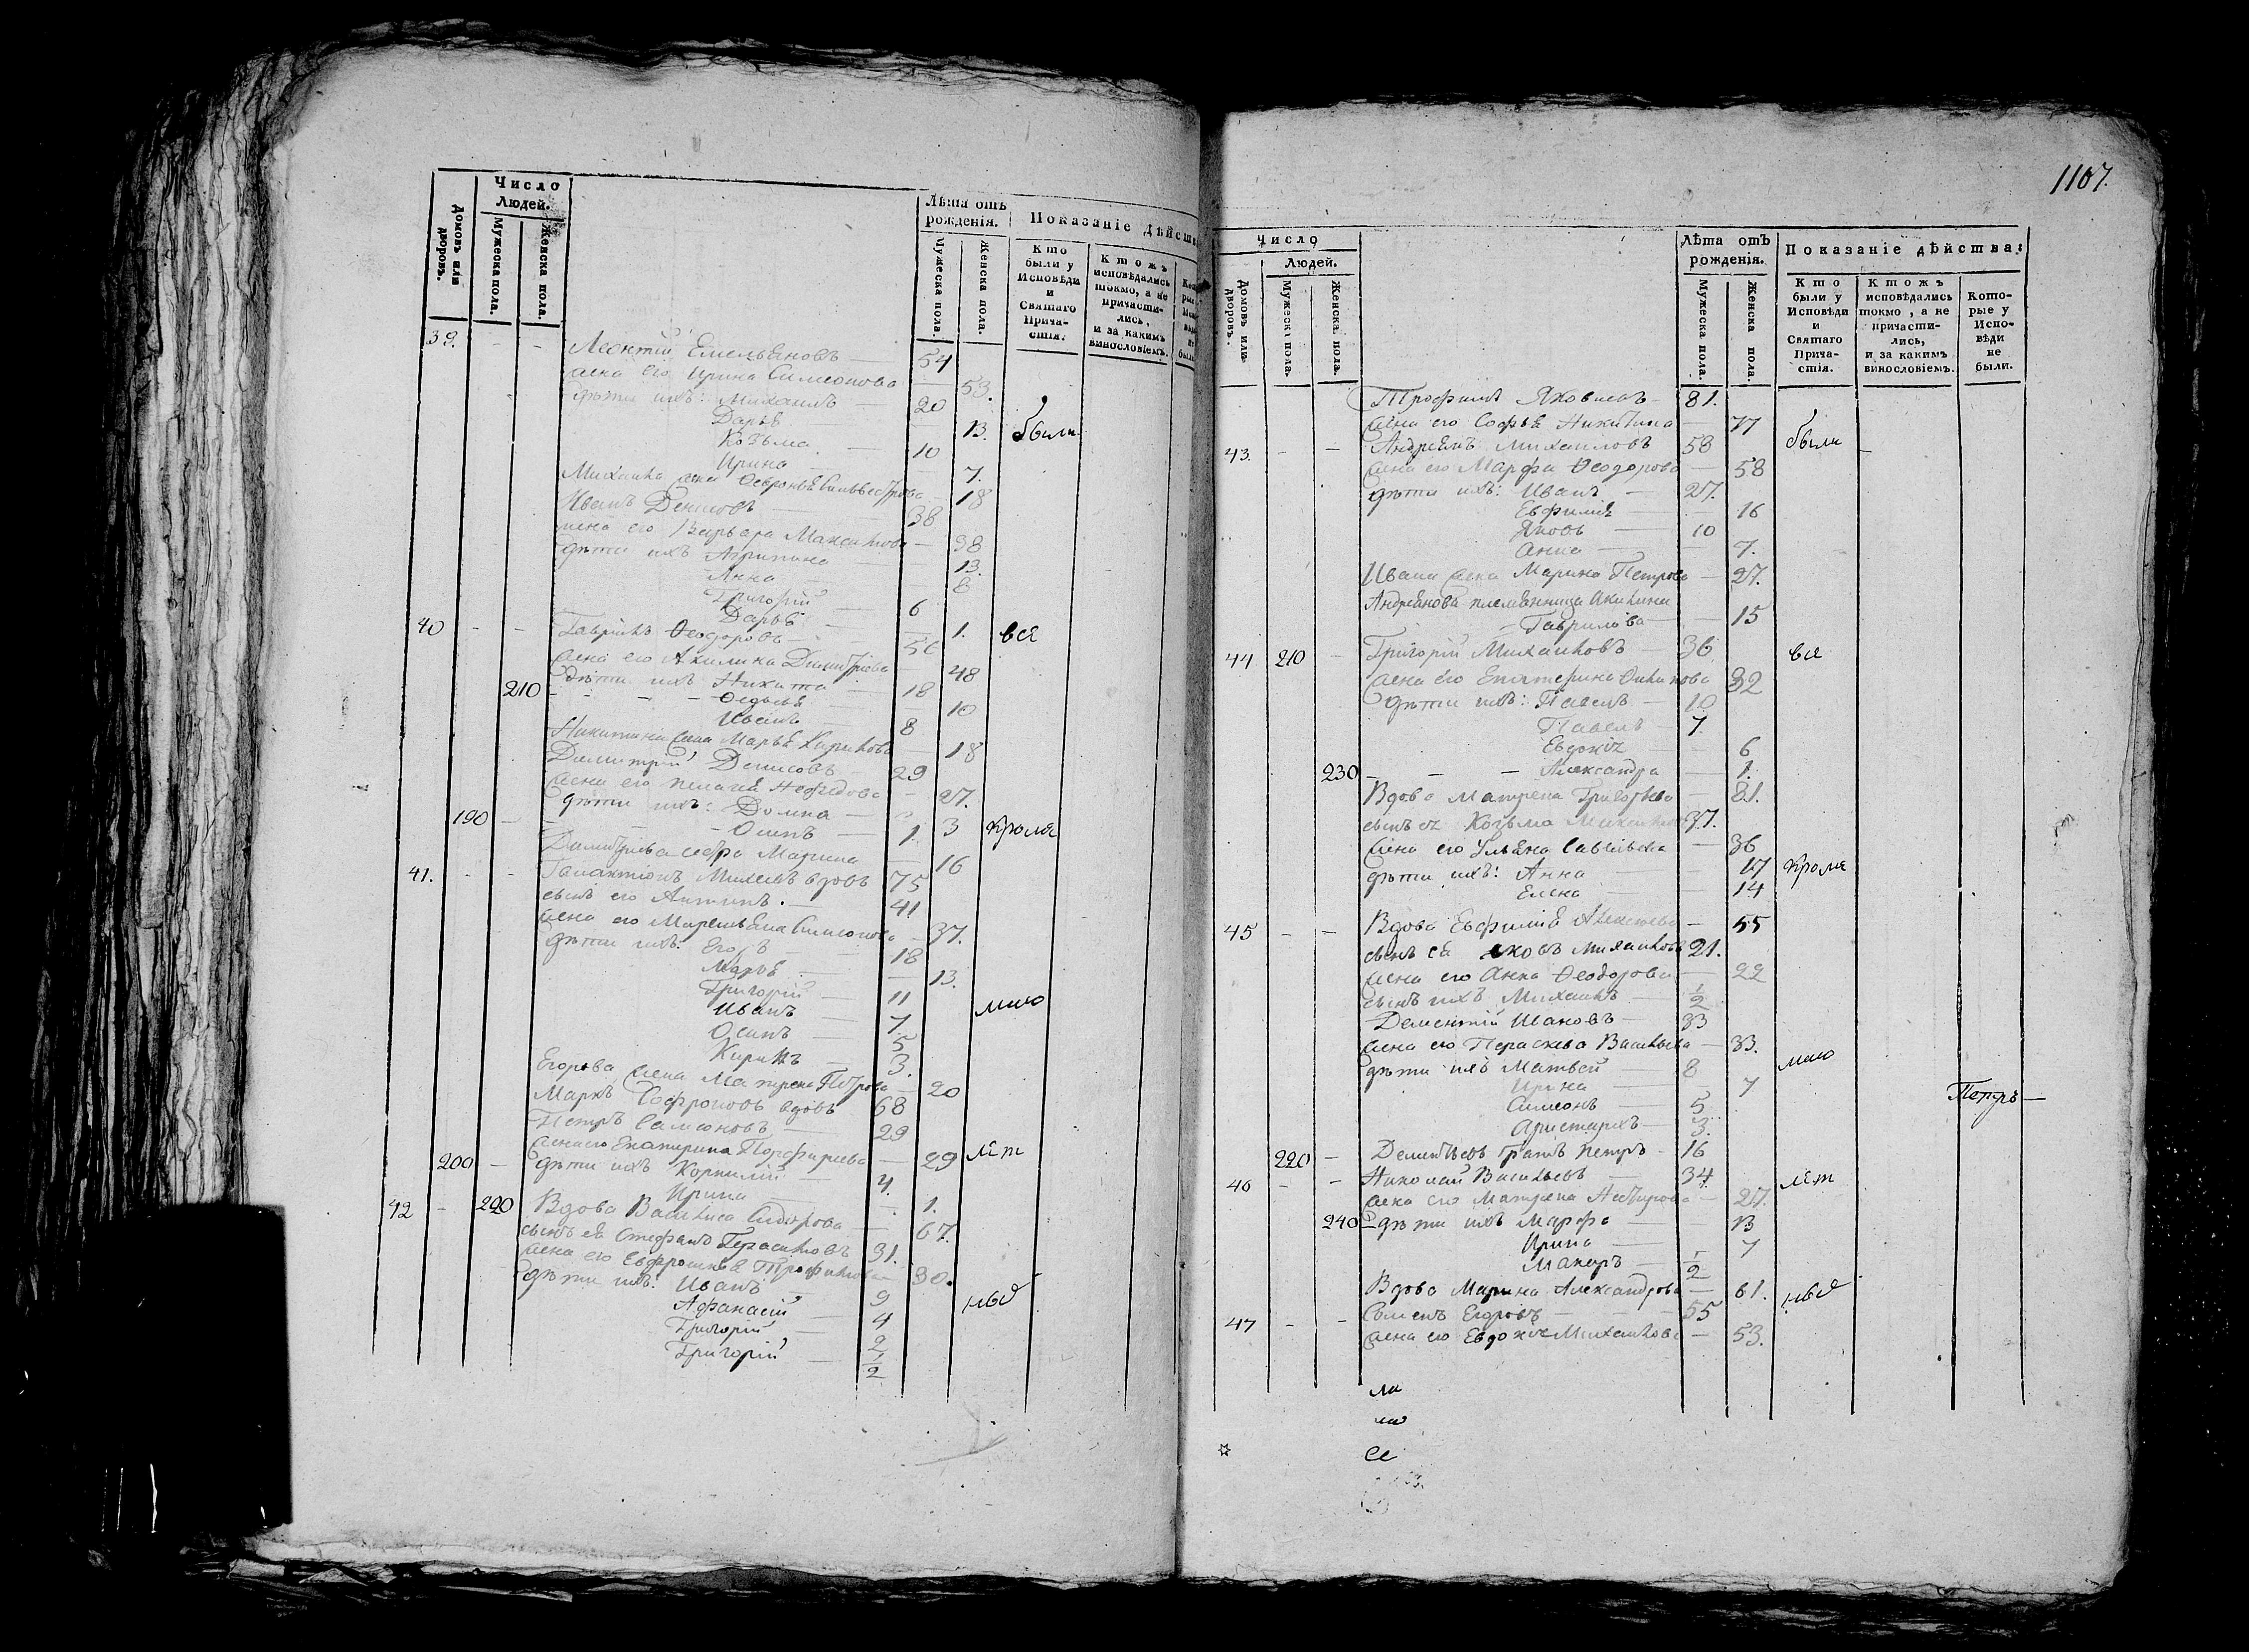 Число
Людей.
Домовъ или дворовъ.
Мужеска пола.
Женска пола.
Лѣта отъ рожденія.
Мужеска пола.
Женска пола.
Показаніе дѣйств
Кто были у Исповѣди и Святаго Прича- стія.
Ктожъ исповѣдались токмо, а не причасти- лись, и за какимъ винословіемъ.
39. - - Леонтій Емельяновъ — 54
жена его Ирина Симеонова — 53.
дѣти ихъ: Михаилъ — 20
Дарья — 13. были
Козьма — 10
Ирина — 7.
Михаила жена Февронья Сильвестрова — 18
Иванъ Денисовъ — 38
жена его Варвара Максимова — 38
дѣти ихъ Агрипина — 13.
Анна — 8
Григорій — 6
Дарья — 1. все
40 - - Гавріилъ Ѳеодоровъ — 56
жена его Акилина Димитріева — 48
дѣти ихъ Никита — 18
210 - - - Ѳедосья — 10
Иванъ — 8
Никитина жена Марья Кирилова — 18
Димитрій Денисовъ — 29
жена его Пелагея — 27.
дѣти ихъ: Домна — 3
190 - - Осипъ — 1. кроме
Димитріева сестра Марина — 16
41. - - Галактіонъ вдовъ 75
сынъ его Антипъ. — 41
жена его Маремьяна Симеонова — 37.
дѣти ихъ: Егоръ — 18
Марья — 13.
Григорій — 11 мало
Иванъ — 7
Осипъ — 5
Кирилъ — 3.
Егорова жена Матрена Петрова — 20
Маркъ Софроновъ вдовъ 68
Петръ Самсоновъ — 29
жена его Екатерина Порфирьева — 29 лѣт
200 - дѣти ихъ Корнилій — 4.
Ирина — 1.
42 - 220 Вдова Василиса Сидорова — 67.
сынъ ея Стефанъ Герасимовъ 31.
жена его Евфросинья Трофимова — 30.
дѣти ихъ: Иванъ — 9
Афанасій — 4 ныя
Григорій — 2
Григорій — 1/2
1107.
Число
Людей.
Домовъ или дворовъ.
Мужеска пола.
Женска пола.
Лѣта отъ рожденія.
Мужеска пола.
Женска пола.
Показаніе дѣйства:
Кто были у Исповѣди и Святаго Прича- стія.
Ктожъ исповѣдались токмо, а не причасти- лись, и за какимъ винословіемъ.
Кото- рые у Испо- вѣди не были.
Трофимъ Яковлевъ — 81.
жена его Софья Никитина — 77
43. - - Андреянъ Михаиловъ 58 были
жена его Марфа Ѳеодорова — 58
дѣти ихъ: Иванъ — 27.
Евфимія — 16
Яковъ — 10
Анна — 7.
Ивана жена Марина Петрова — 27.
Андреянова племянница Акилина
Гаврилова — 15
44 210 - Григорій Михаиловъ — 36 все
жена его Екатерина 32
дѣти ихъ: Павелъ — 10
Павелъ — 7
Евдокія — 6
230 - - - Александра — 1.
Вдова Матрена Григорьева — 81.
сынъ ея Козьма 37.
жена его Ульяна Савельева — 36
дѣти ихъ: Анна — 17 кроме
Елена — 14
45 - - Вдова Евфимія Алексѣева — 55
сынъ ея Яковъ Михаиловъ 21.
жена его Анна Ѳеодорова — 22
сынъ ихъ Михаилъ — 1/2
Дементій Ивановъ — 33
жена его Параскева Васильева — 33.
дѣти ихъ Матвей — 8 мало
Ирина — 7
Симеонъ — 5
Аристархъ — 3.
Петръ —
220 - Дементьевъ братъ Петръ - 16
46 - - Николай Васильевъ 34 лѣт
жена его Матрена — 27.
240 - дѣти ихъ Марфа — 13
Ирина — 7
Макаръ — 1/2
Вдова Марина Александрова — 61. ныя
47 - - Семенъ Егоровъ — 55
жена его Евдокія Михаилова — 53.